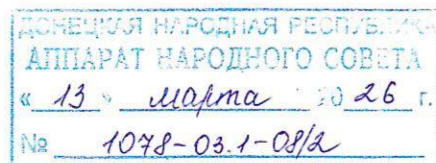 ДОНЕЦКАЯ НАРОДНАЯ РЕСПУБЛИКА
АППАРАТ НАРОДНОГО СОВЕТА
« 13 » марта 20 26 г.
№ 1078-03.1-08/2